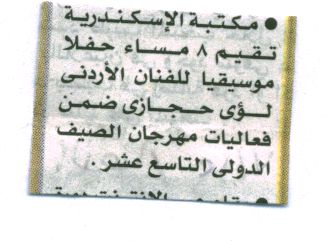 ● مكتبة الإسكندرية
تقيم ٨ مساء حفلا
موسيقيا للفنان الأردنى
لـؤى حـجـازى ضمن
فعاليات مهرجان الصيف
الدولى التاسع عشر.